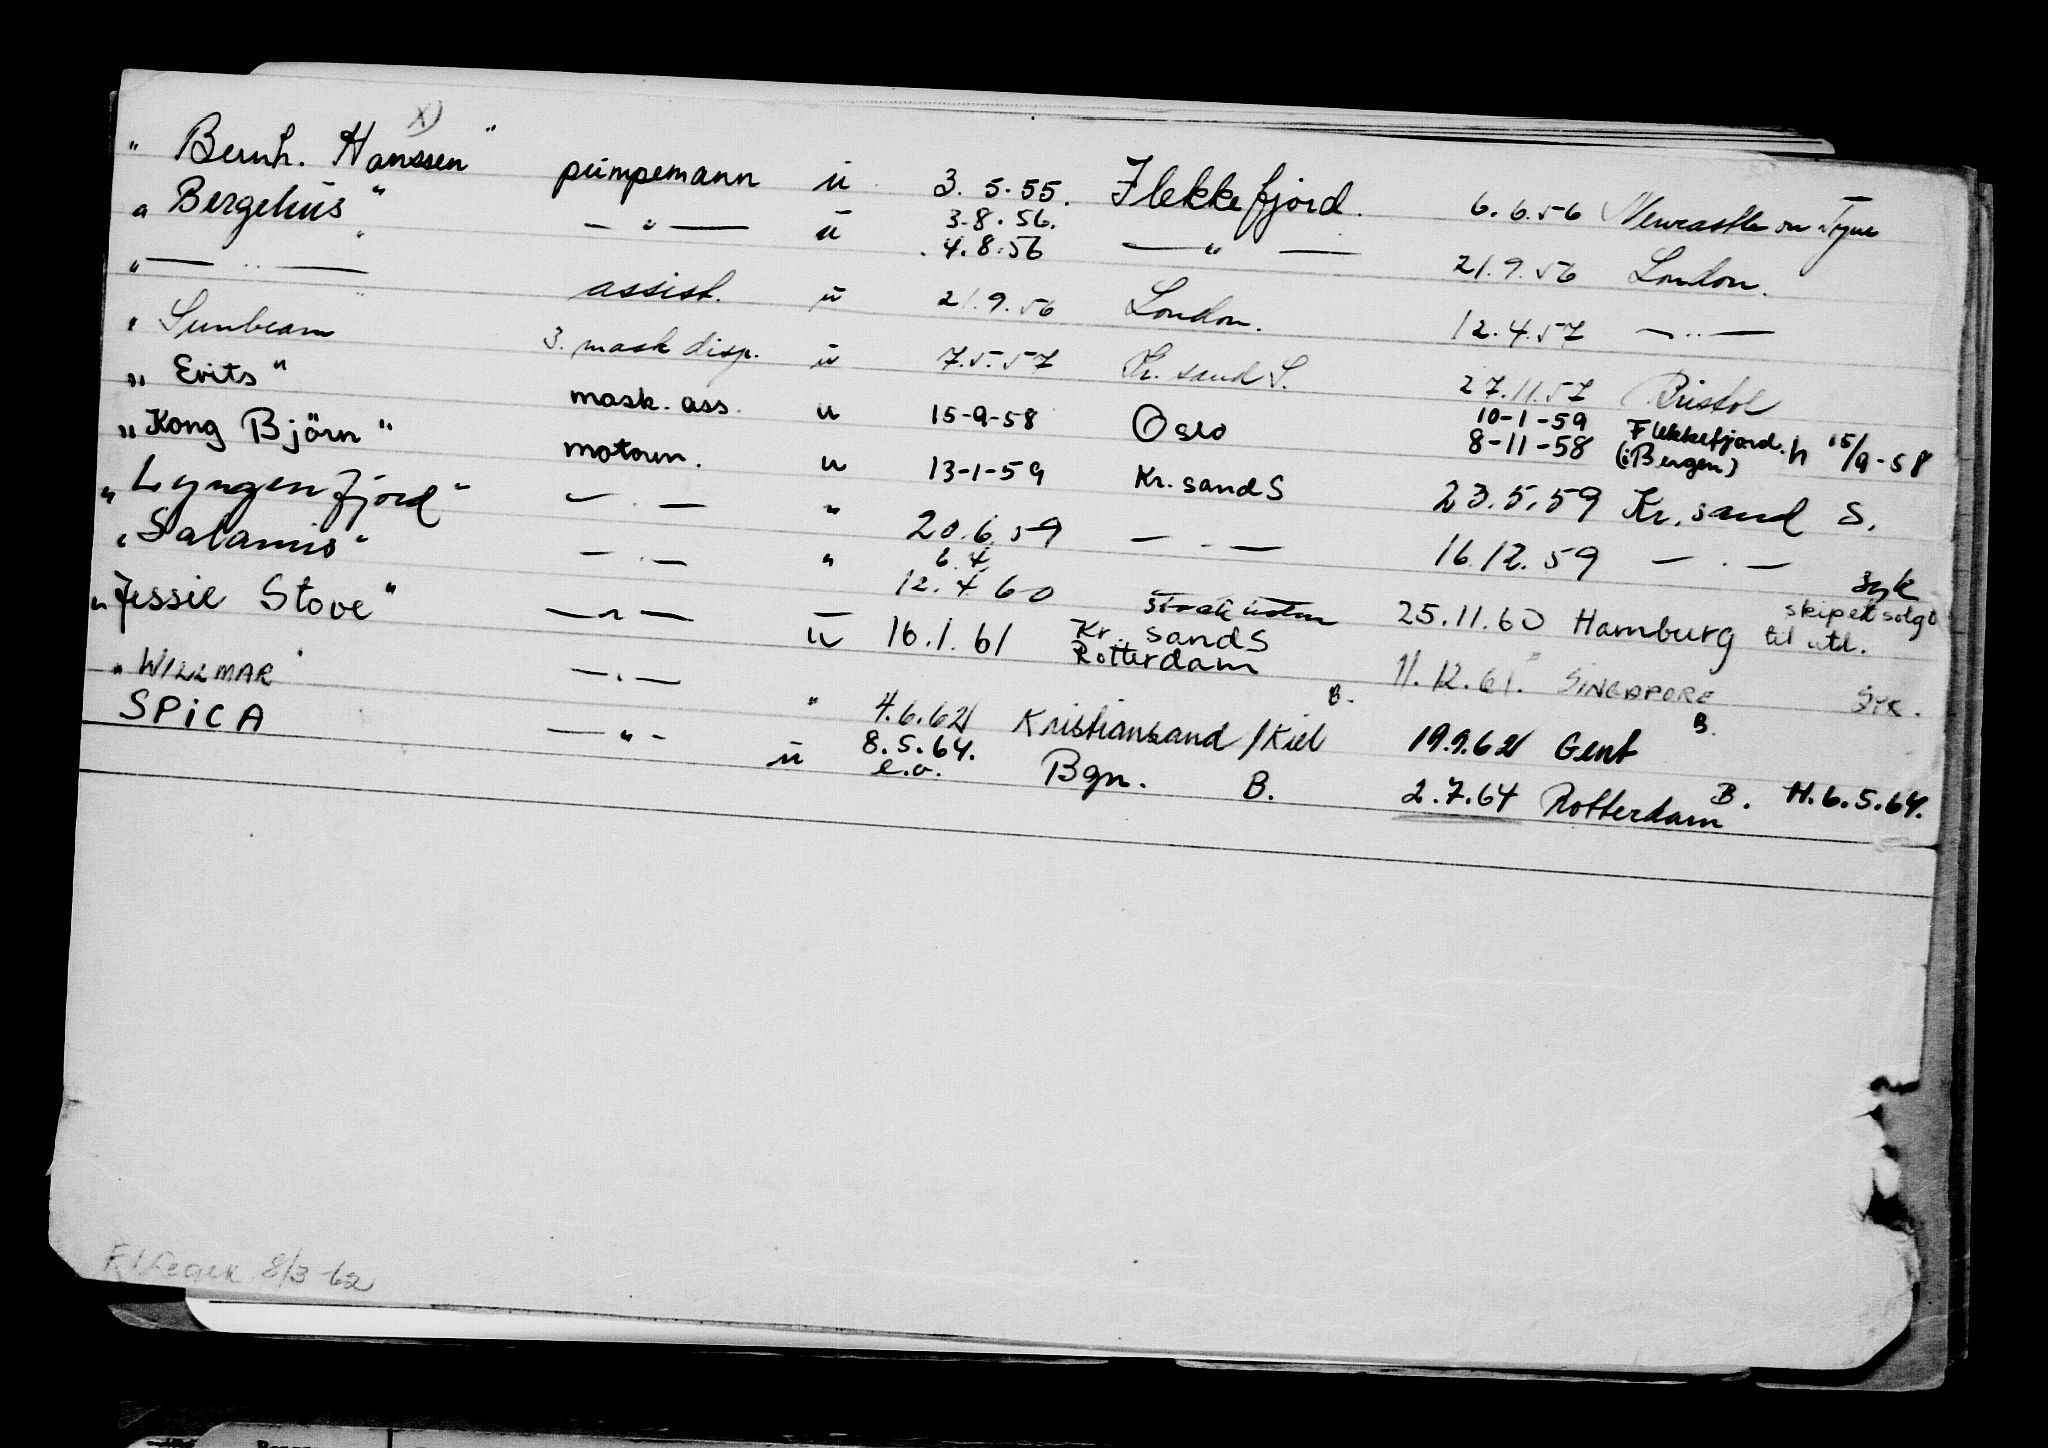 x)
" Bernh. Hanssen " pumpemann u 3.5.55. Flekkefjord. 6.6.56 Newcastle on Tyne
" Bergehus " — " — u 3.8.56. 4.8.56 — " — 21.9.56 London.
" — " — " assist. u 21.9.56 London. 12.4.57 — " —
" Sunbeam 3. mask disp. u 7.5.57 Kr. sand S. 27.11.57 Bristol
" Erits " mask. ass. u 15-9-58 Oslo 10-1-59 Flekkefjord. h 15/9-58
8-11-58 (i Bergen)
" Kong Björn " motorm. u 13-1-59 Kr. sand S 23.5.59 Kr. sand S.
" Lyngenfjord " — " — " 20.6.59 — " — 16.12.59 — " — syk
" Salamis " — " — " 6.4. 12.4.60 25.11.60 Hamburg skipet solgt til utl.
" Jessie Stove " — " — u 16.1.61 Kr. sand S Rotterdam 11.12.61. SINGAPORE SYK.
" WILLMAR " — " — " 4.6.62 Kristiansand / Kiel B. 19.9.62 Gent B.
SPiCA — " — u 8.5.64. e.o. Bgn. B. 2.7.64 Rotterdam B. H. 6.5.64.
8/3-62